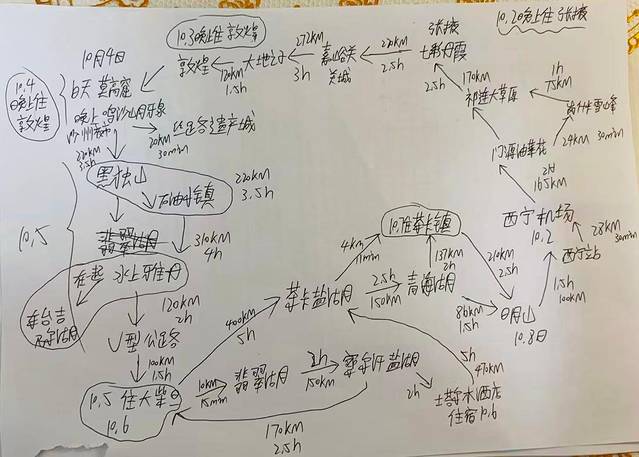 10.3晚上住敦煌
10.2晚上住张掖
10月4日
10.4
晚上住
敦煌
白天 莫高窟
晚上 鸣沙山月牙泉
沙州夜市
20km
30min
敦煌
120km
1.5h
大地之子
272km
3h
嘉峪关
关城
220km
2.5h
张掖
七彩丹霞
170km
2.5h
祁连大草原
1h
75km
24km
30min
门源油菜花
2h
165km
西宁机场
10.2
28km
30min
西宁站
1.5h
100km
日月山
10.8日
220km
3.5h
黑独山
石油小镇
220km
3.5h
10.5
翡翠湖
310km
4h
在一起
水上雅丹
120km
2h
U型公路
100km
1.5h
10.5 住大柴旦
10.6
400km
5h
茶卡盐湖
4km
11min
2.5h
150km
青海湖
137km
2h
210km
2.5h
86km
1.5h
10km
15min
翡翠湖
2h
150km
察尔汗盐湖
2h
5h
470km
酒店
住宿10.6
170km
2.5h